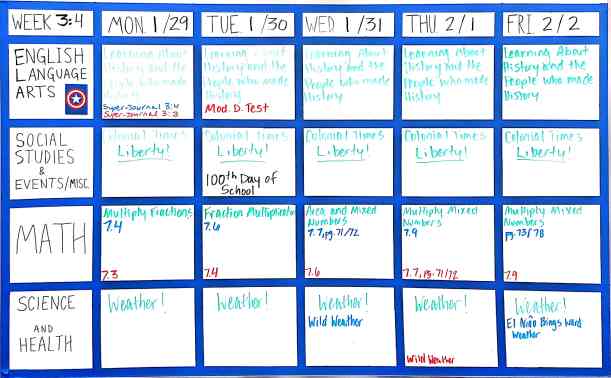 WEEK 3:4
MON. 1/29
TUE. 1/30
WED 1/31
THU 2/1
FRI. 2/2
ENGLISH
LANGUAGE
ARTS
Learning About
History and the
People who made
History
Super-Journal 3:4
Super-Journal 3:3
Learning
History and the
People who made
History
Mod. D. Test
Learning About
History and the
People who made
History
Learning About
History and the
People who made
History
Learning About
History and the
People who made
History
SOCIAL
STUDIES
&
EVENTS/MISC.
Colonial Times
Liberty!
Colonial Times
Liberty!
100th Day of
School
Colonial Times
Liberty!
Colonial Times
Liberty!
Colonial Times
Liberty!
MATH
Multiply Fractions
7.4
7.3
Fraction
7.6
7.4
Area and Mixed
Numbers
7.7, pg. 71/72
7.6
Multiply Mixed
Numbers
7.9
7.7, pg. 71/72
Multiply Mixed
Numbers
pg. 73/78
7.9
SCIENCE
AND
HEALTH
Weather!
Weather!
Weather!
Wild Weather
Weather!
Wild Weather
Weather!
El Niño Bings
Weather